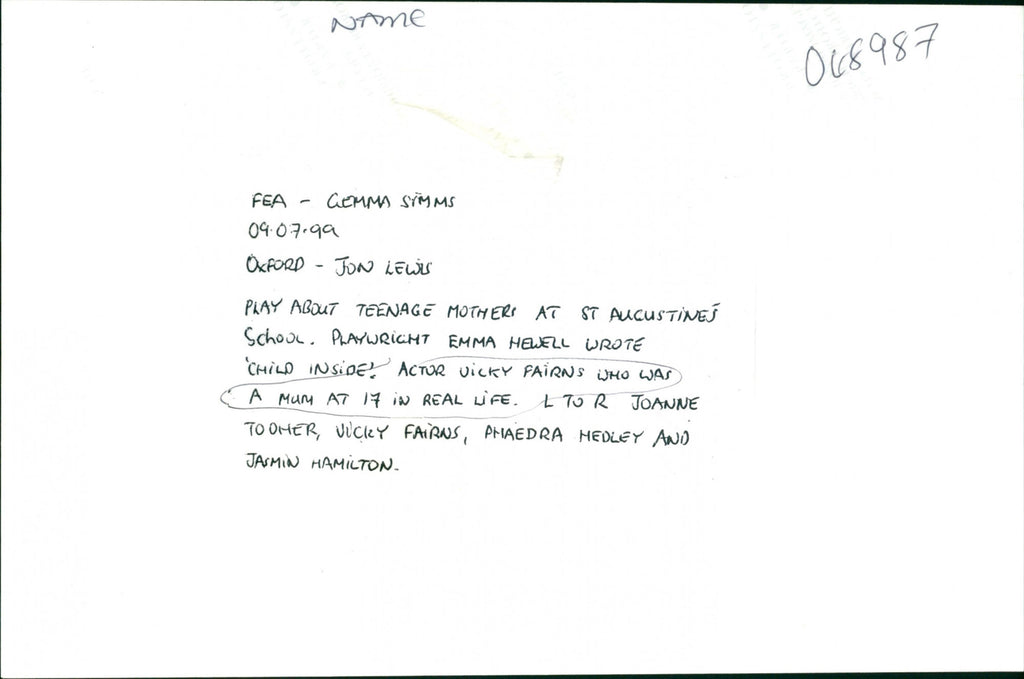 NAME
048987
FEA - GEMMA SIMMS
09.07.99
OXFORD - JON LEWIS
PLAY ABOUT TEENAGE MOTHERS AT ST AUGUSTINE'S
SCHOOL. PLAYWRIGHT EMMA HEWELL WROTE
'CHILD INSIDE'. ACTOR VICKY FAIRNS WHO WAS
A MUM AT 17 IN REAL LIFE. L TO R JOANNE
TOOMER, VICKY FAIRNS, PHAEDRA HEDLEY AND
JASMIN HAMILTON.